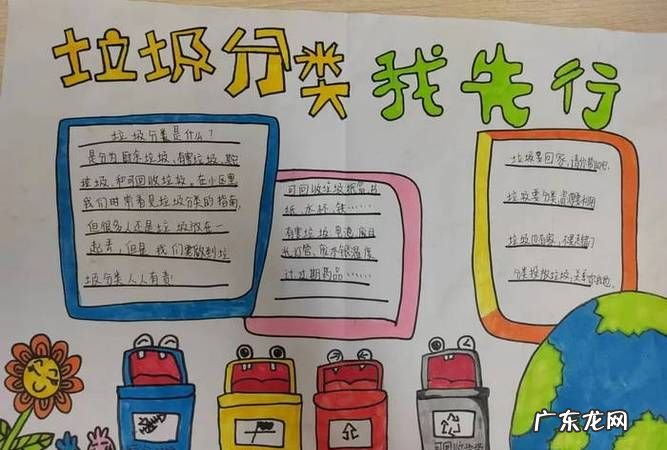 垃圾分类 我先行
垃圾分类是什么?
是分为厨余垃圾,有害垃圾,其他
垃圾,和可回收垃圾。在小区里
我们时常看见垃圾分类的指南,
但很多人还是垃圾放在一
起丢,但是我们要做到垃
圾分类人人有责!
可回收垃圾:纸品,书
纸,水杯,铁……
有害垃圾:电池,废日
光灯管,废水银温度
计,过期药品……
垃圾要回家,请你帮助它。
垃圾要分类,资源要利用
垃圾也有家,
分类投放垃圾,
可回收垃圾
广东龙网